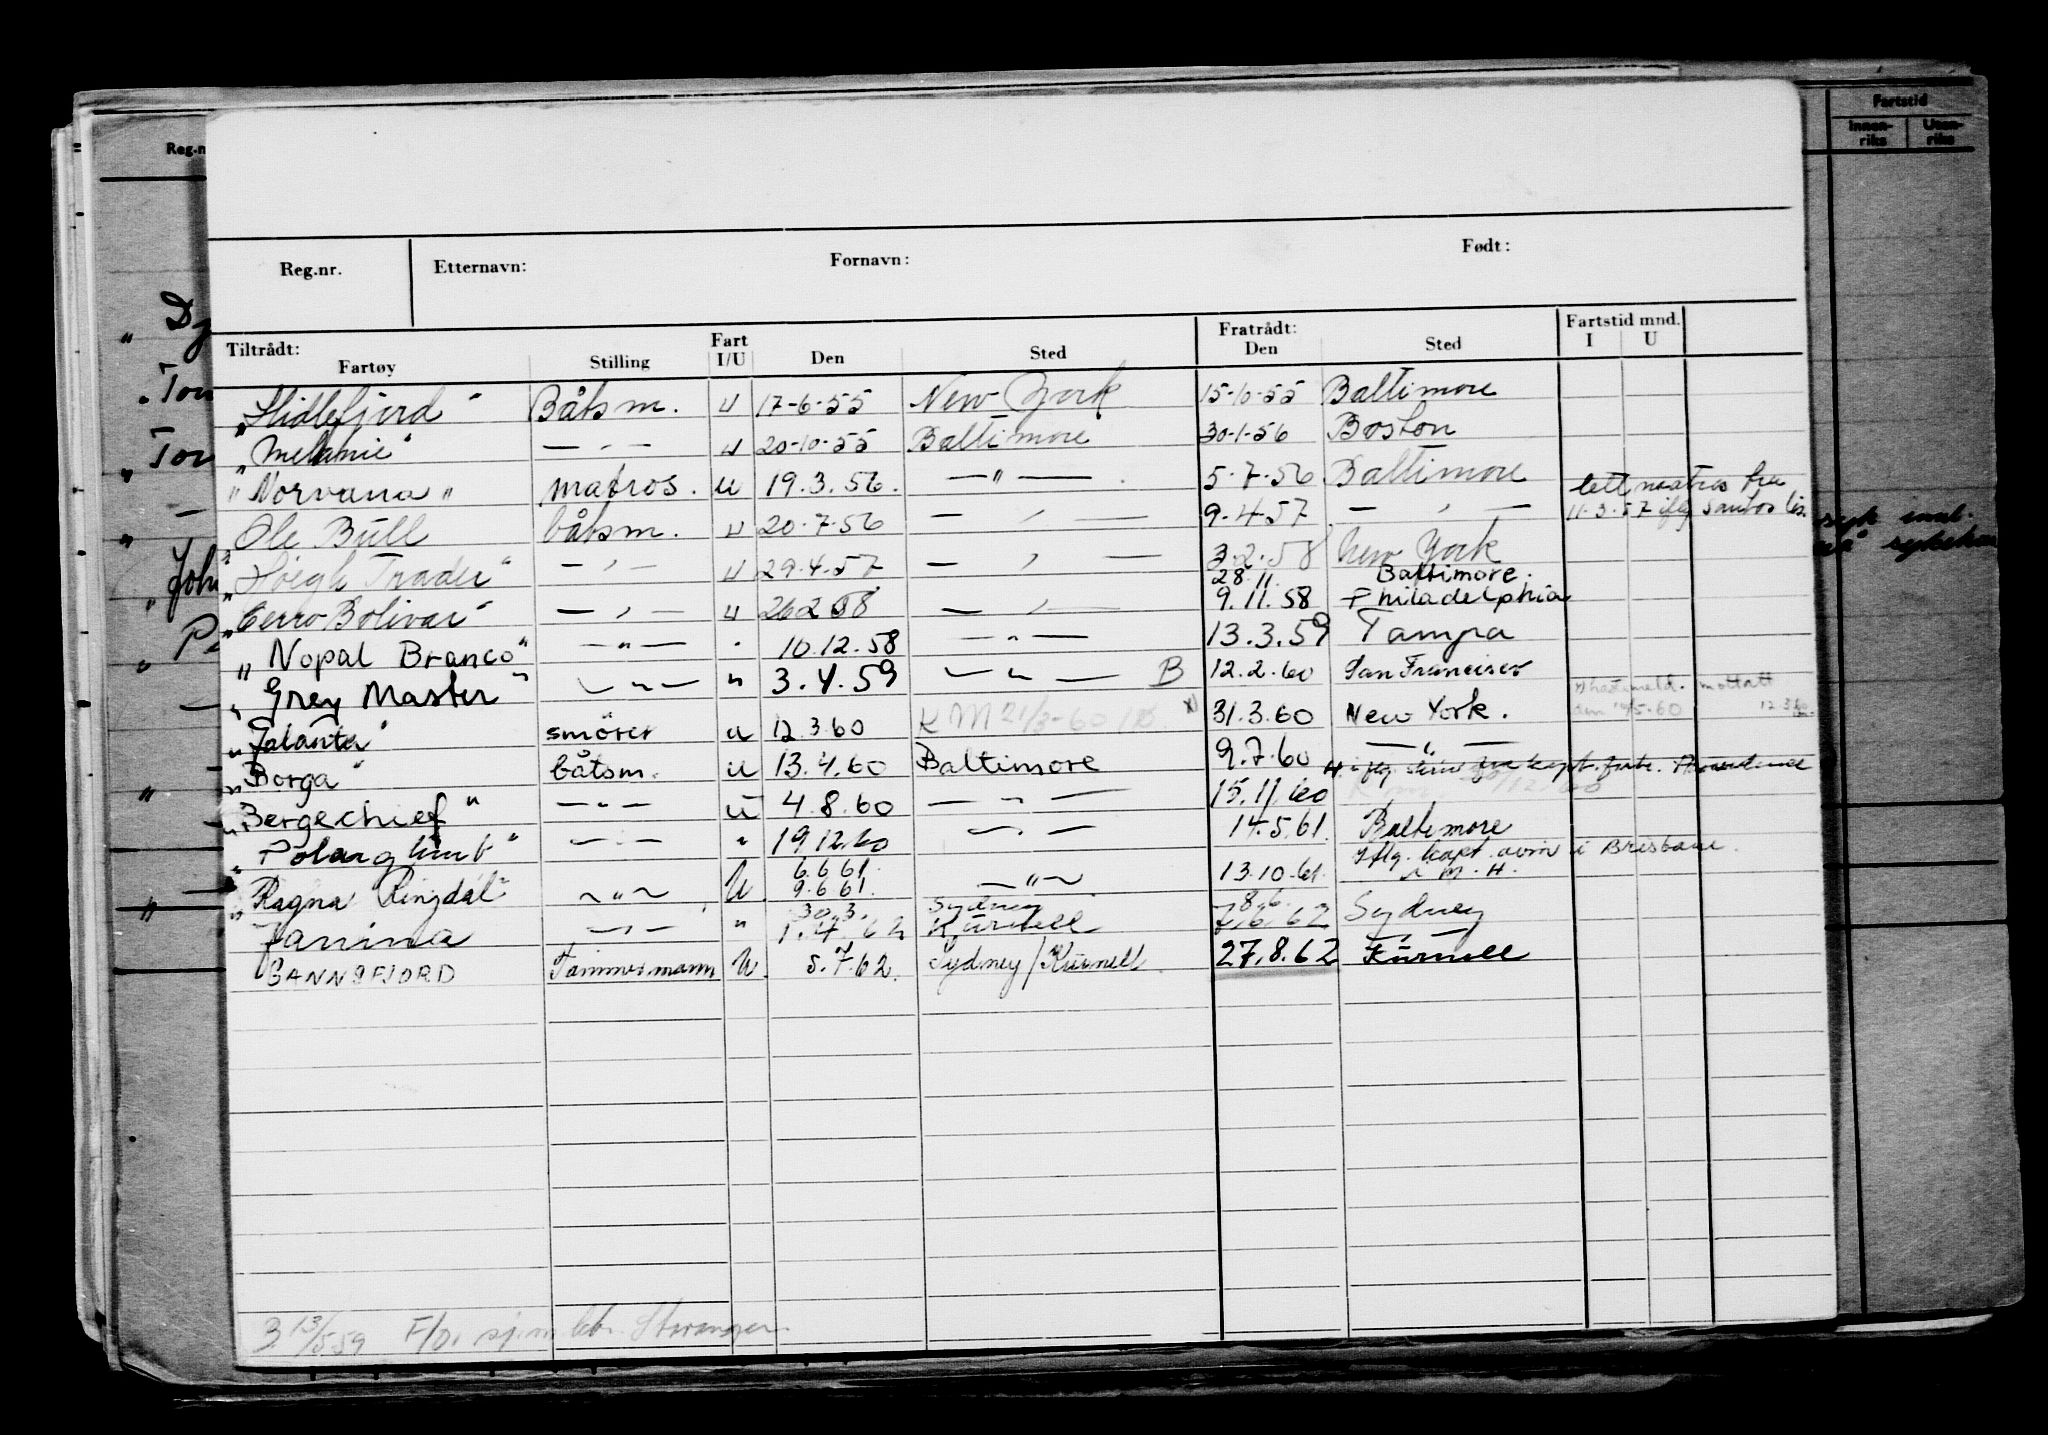 Fartstid
Innen-riks Uten-riks
Reg.n
Reg.nr. Etternavn: Fornavn: Født:
Tiltrådt: Fart Fratrådt: Fartstid mnd.
Fartøy Stilling I/U Den Sted Den Sted I U
"Hidlefjord" Båtsm. u 17-6-55 New York 15-10-55 Baltimore
"Melanie" — " — u 20-10-55 Baltimore 30-1-56 Boston
"Norvana" matros. u 19.3.56. — " — 5.7.56 Baltimore lett matros fra
Ole Bull båtsm. u 20.7.56 — " — 9.4.57 — " — 11.3.57 iflg
"Høegh Trader" — " — u 29.4.57 — " — 3.2.58 New York
28.11 Baltimore.
"Cerro Bolivar" — " — u 26.2.58 — " — 9.11.58 Philadelphia
"Nopal Branco" — " — " 10.12.58 — " — 13.3.59 Tampa
"Grey Master" — " — " 3.4.59 — " — B 12.2.60 San Francisco
"Jalanta" smører u 12.3.60 KM 21/3-60 x) 31.3.60 New York. mottatt
"Borga" båtsm. u 13.4.60 Baltimore 9.7.60 — " —
"Bergechief" — " — u 4.8.60 — " — 15.11.60
"Polarglimt" — " — " 19.12.60 — " — 14.5.61. Baltimore
6.6.61. Iflg. kapt. avm. i Brisbane.
"Ragna Ringdal" — " — U 9.6.61. — " — 13.10.61. i M.H.
30.3. Sydney 8.6.
"Janina — " — " 1.4.62 Kurnell 7.6.62 Sydney
SANNSFJORD Tømmermann U. 5.7.62. Sydney/Kurnell 27.8.62 Kurnell
B 13/5 59 F/o.